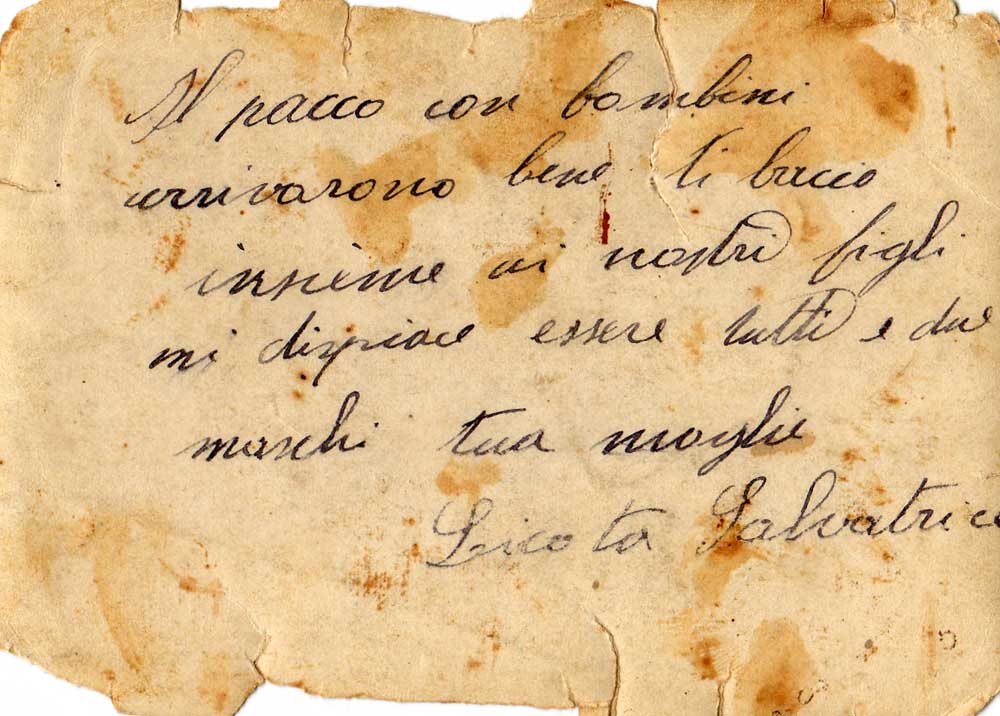 Il pacco con bambini
arrivarono bene ti bacio
insieme ai nostri figli
mi dispiace essere tutti e due
maschi tua moglie
Licota Salvatrice